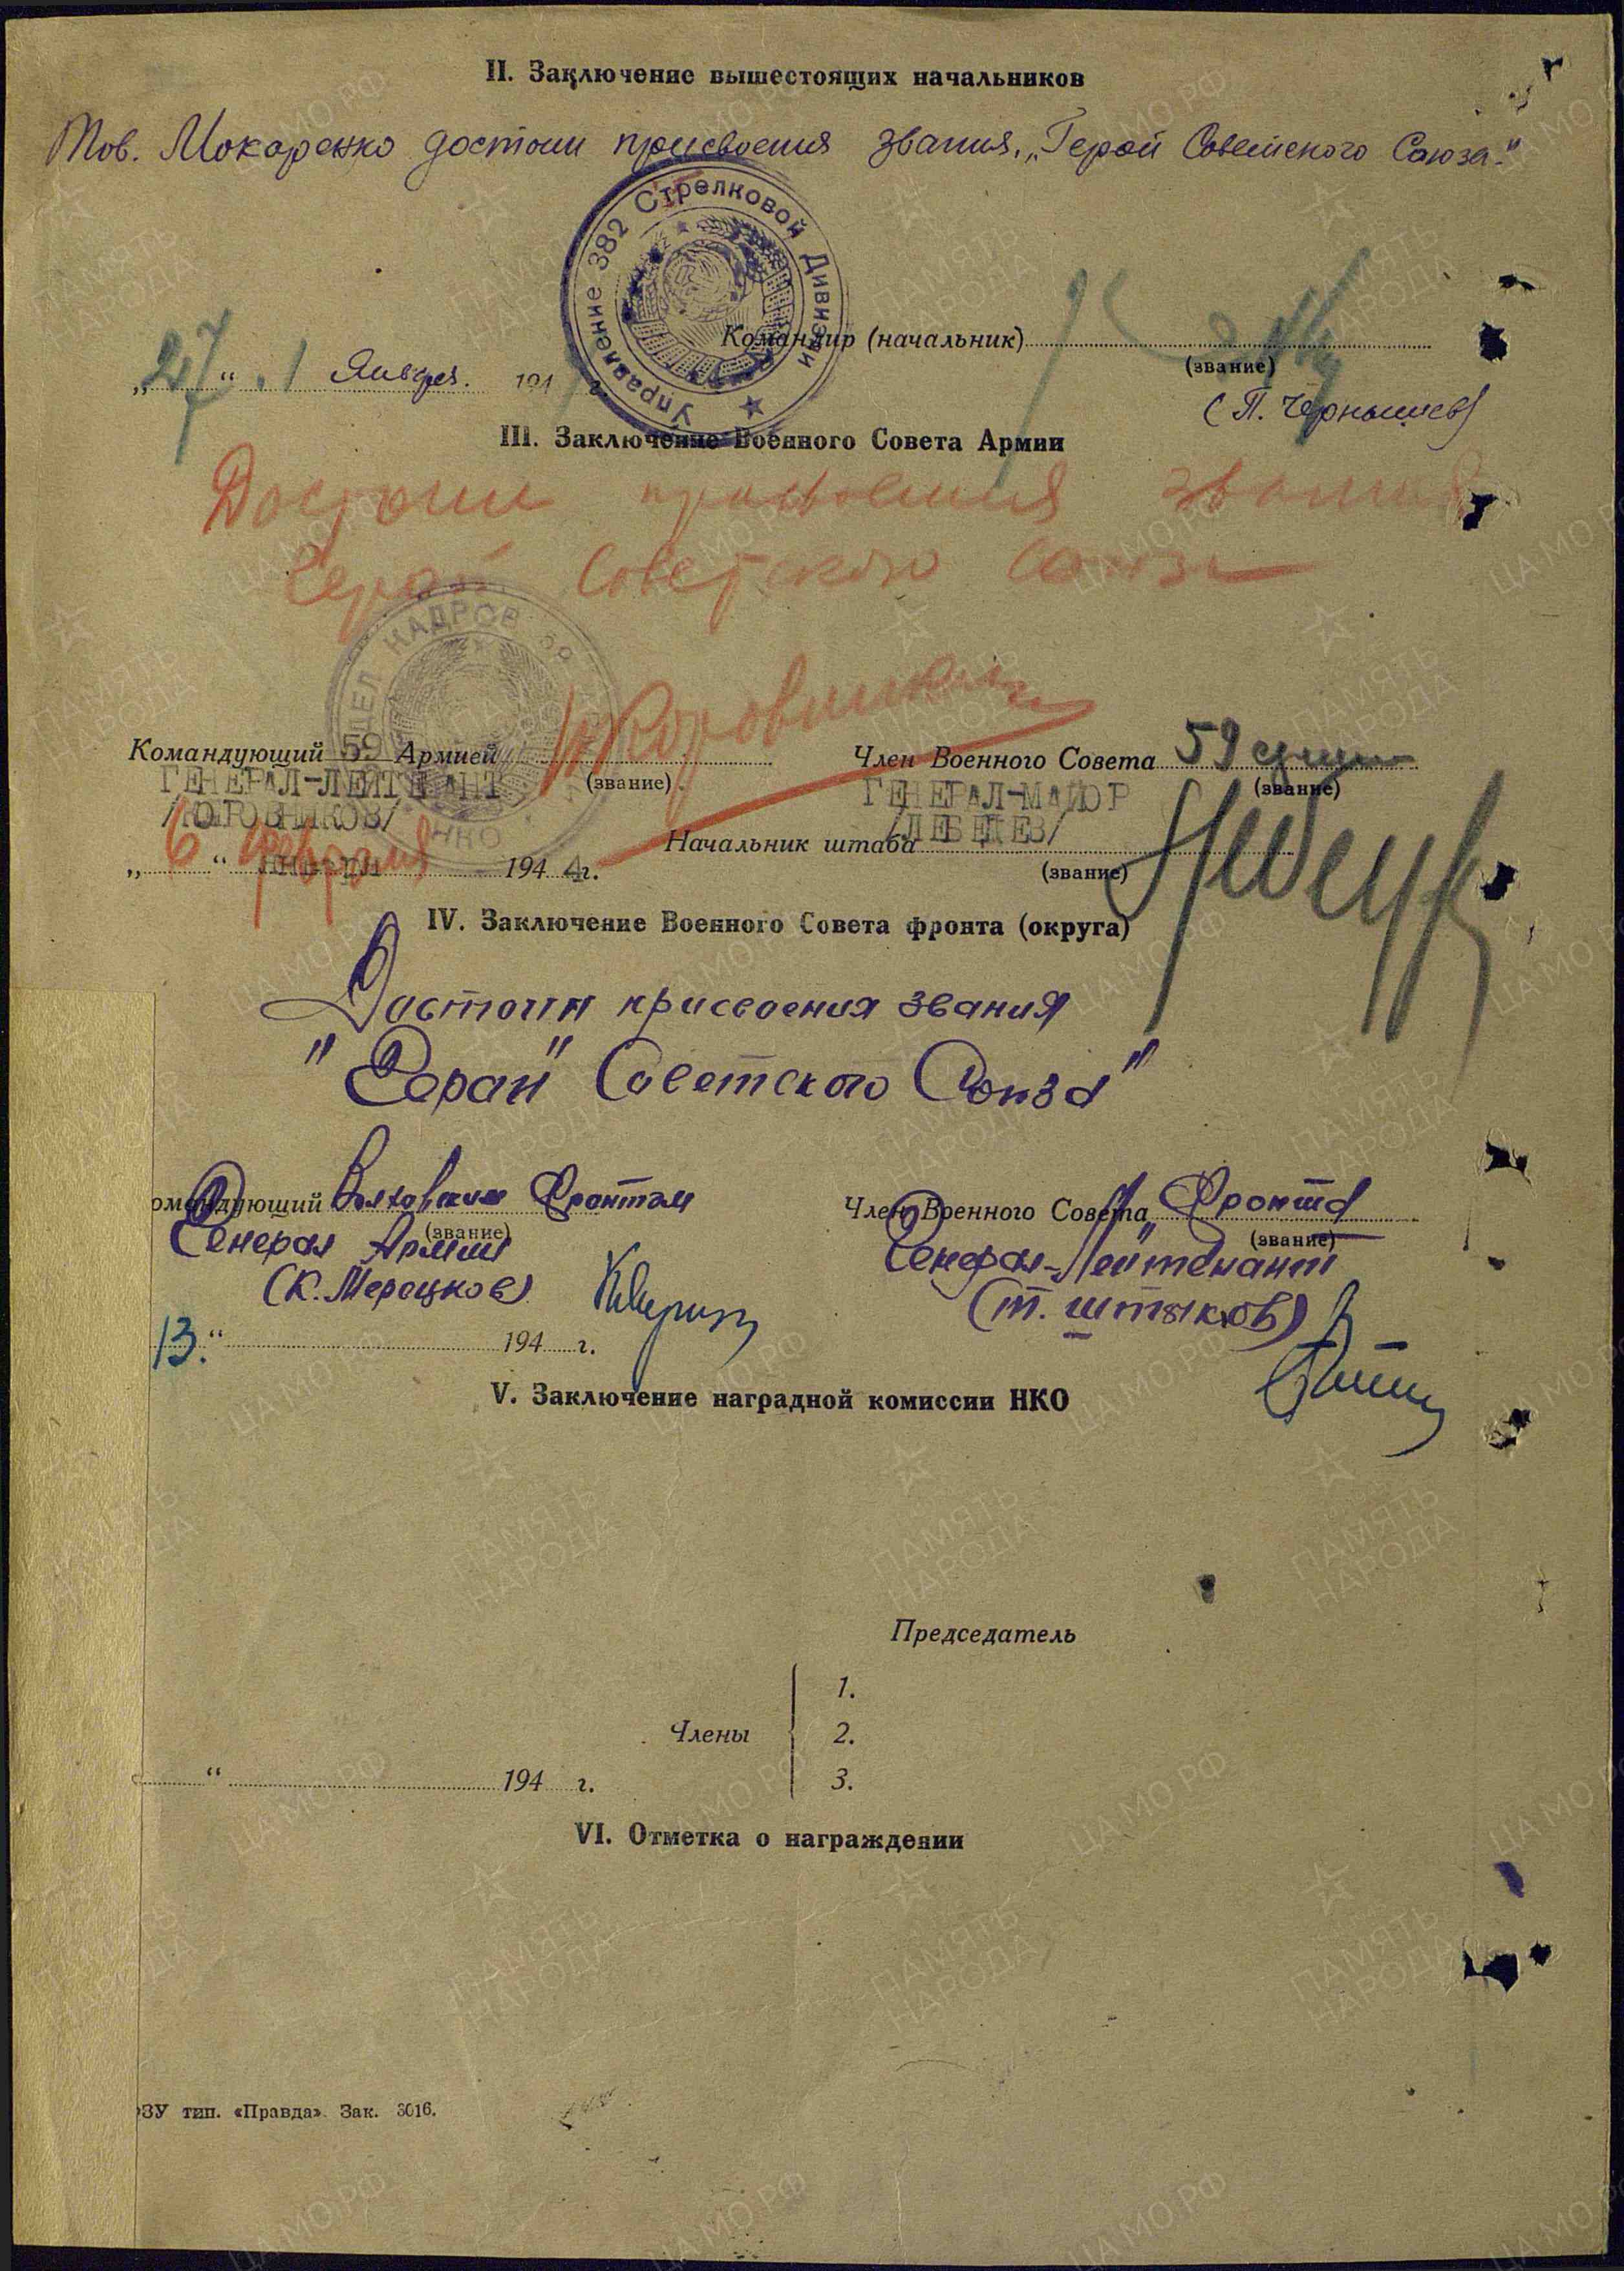 II. Заключение вышестоящих начальников
Тов. Мокаренко достоин присвоения звания „Герой Советского Союза."
Управление 382 Стрелковой Дивизии
Командир (начальник)
(звание)
„27“ 1 Января. 194 г.
(П. Чернышев)
III. Заключение Военного Совета Армии
Достоин присвоения звания
Герой Советского Союза
ОТДЕЛ КАДРОВ 59
НКО
Командующий 59 Армией
(звание)
Член Военного Совета 59 армии
(звание)
ГЕНЕРАЛ-ЛЕЙТЕНАНТ
/КОРОВНИКОВ/
ГЕНЕРАЛ-МАЙОР
/ЛЕБЕДЕВ/
Начальник штаба
(звание)
„6“ февраля 1944 г.
IV. Заключение Военного Совета фронта (округа)
Достоин присвоения звания
"Герой" Советского Союза"
омандующий Волховским Фронтом
(звание)
Генерал Армии
(К. Мерецков)
Член Военного Совета Фронта
(звание)
Генерал-Лейтенант
(Т. Штыков)
13.“ 194 г.
V. Заключение наградной комиссии НКО
Председатель
Члены
1.
2.
3.
“ 194 г.
VI. Отметка о награждении
ЗУ тип. «Правда». Зак. 3016.
ПАМЯТЬ НАРОДА
ЦА МО РФ